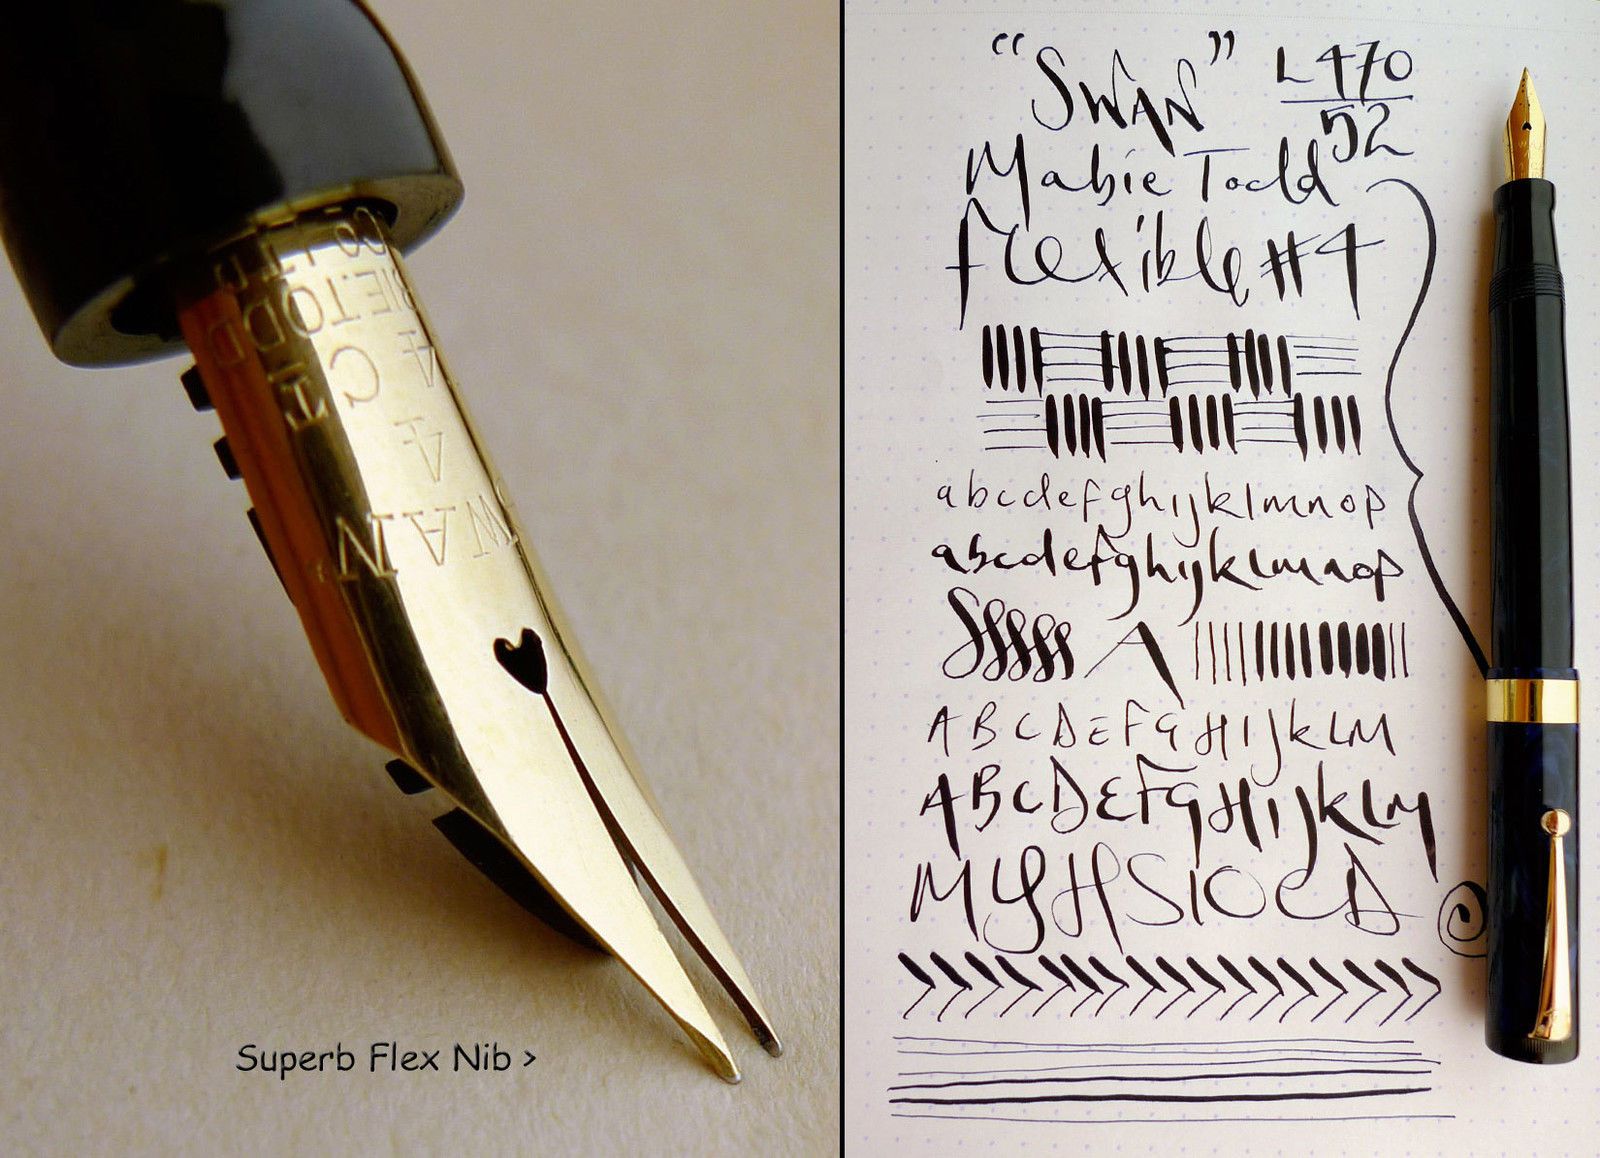 CO LTD
BIE.TODD
14 CT
4
"SWAN
Superb Flex Nib >
"SWAN" L470/52
Mabie Todd
Flexible #4
abcdefghijklmnop
abcdefghijklmnop
A
ABCDEFGHIJKLM
ABCDEFGHIJKLM
MYHSIOCD